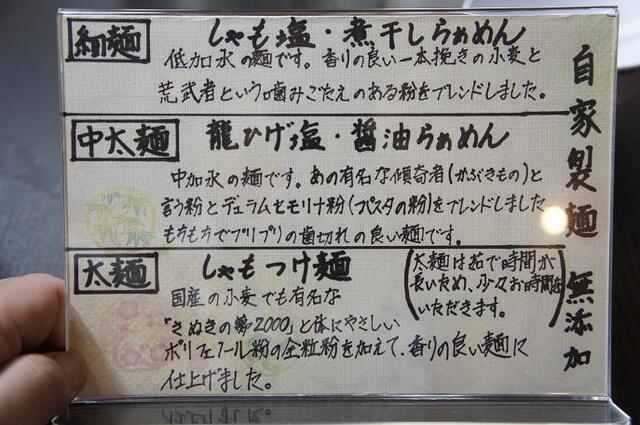 自家製麺 無添加
細麺 しゃも塩・煮干しらぁめん
低加水の麺です。香りの良い一本挽きの小麦と
荒武者という歯みごたえのある粉をブレンドしました。
中太麺 龍ひげ塩・醤油らぁめん
中加水の麺です。あの有名な傾奇者(かぶきもの)と
言う粉とデュラムセモリナ粉(パスタの粉)をブレンドしました
もちもちでプリプリの歯切れの良い麺です。
太麺 しゃもつけ麺
(太麺は茹で時間が
長いため、少々お時間を
いただきます。)
国産の小麦でも有名な
「さぬきの夢2000」と体にやさしい
ポリフェノール粉の全粒粉を加えて、香りの良い麺に
仕上げました。